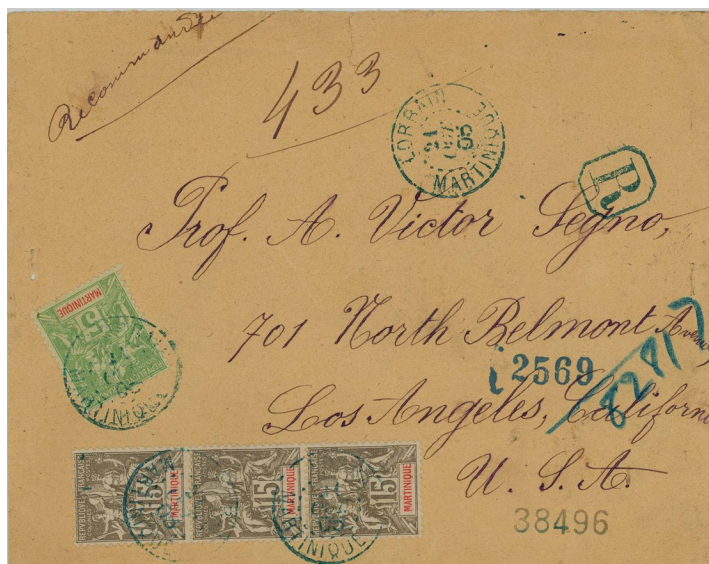 Recommandée
433
LORRAIN
MARTINIQUE
R
Prof. A. Victor Segno,
701 North Belmont Avenue
2569
82817
Los Angeles, Californi
U. S. A.
38496
MARTINIQUE
5
MARTINIQUE
REPUBLIQUE FRANÇAISE
15
MARTINIQUE
REPUBLIQUE FRANÇAISE
15
MARTINIQUE
REPUBLIQUE FRANÇAISE
15
MARTINIQUE
MARTINIQUE